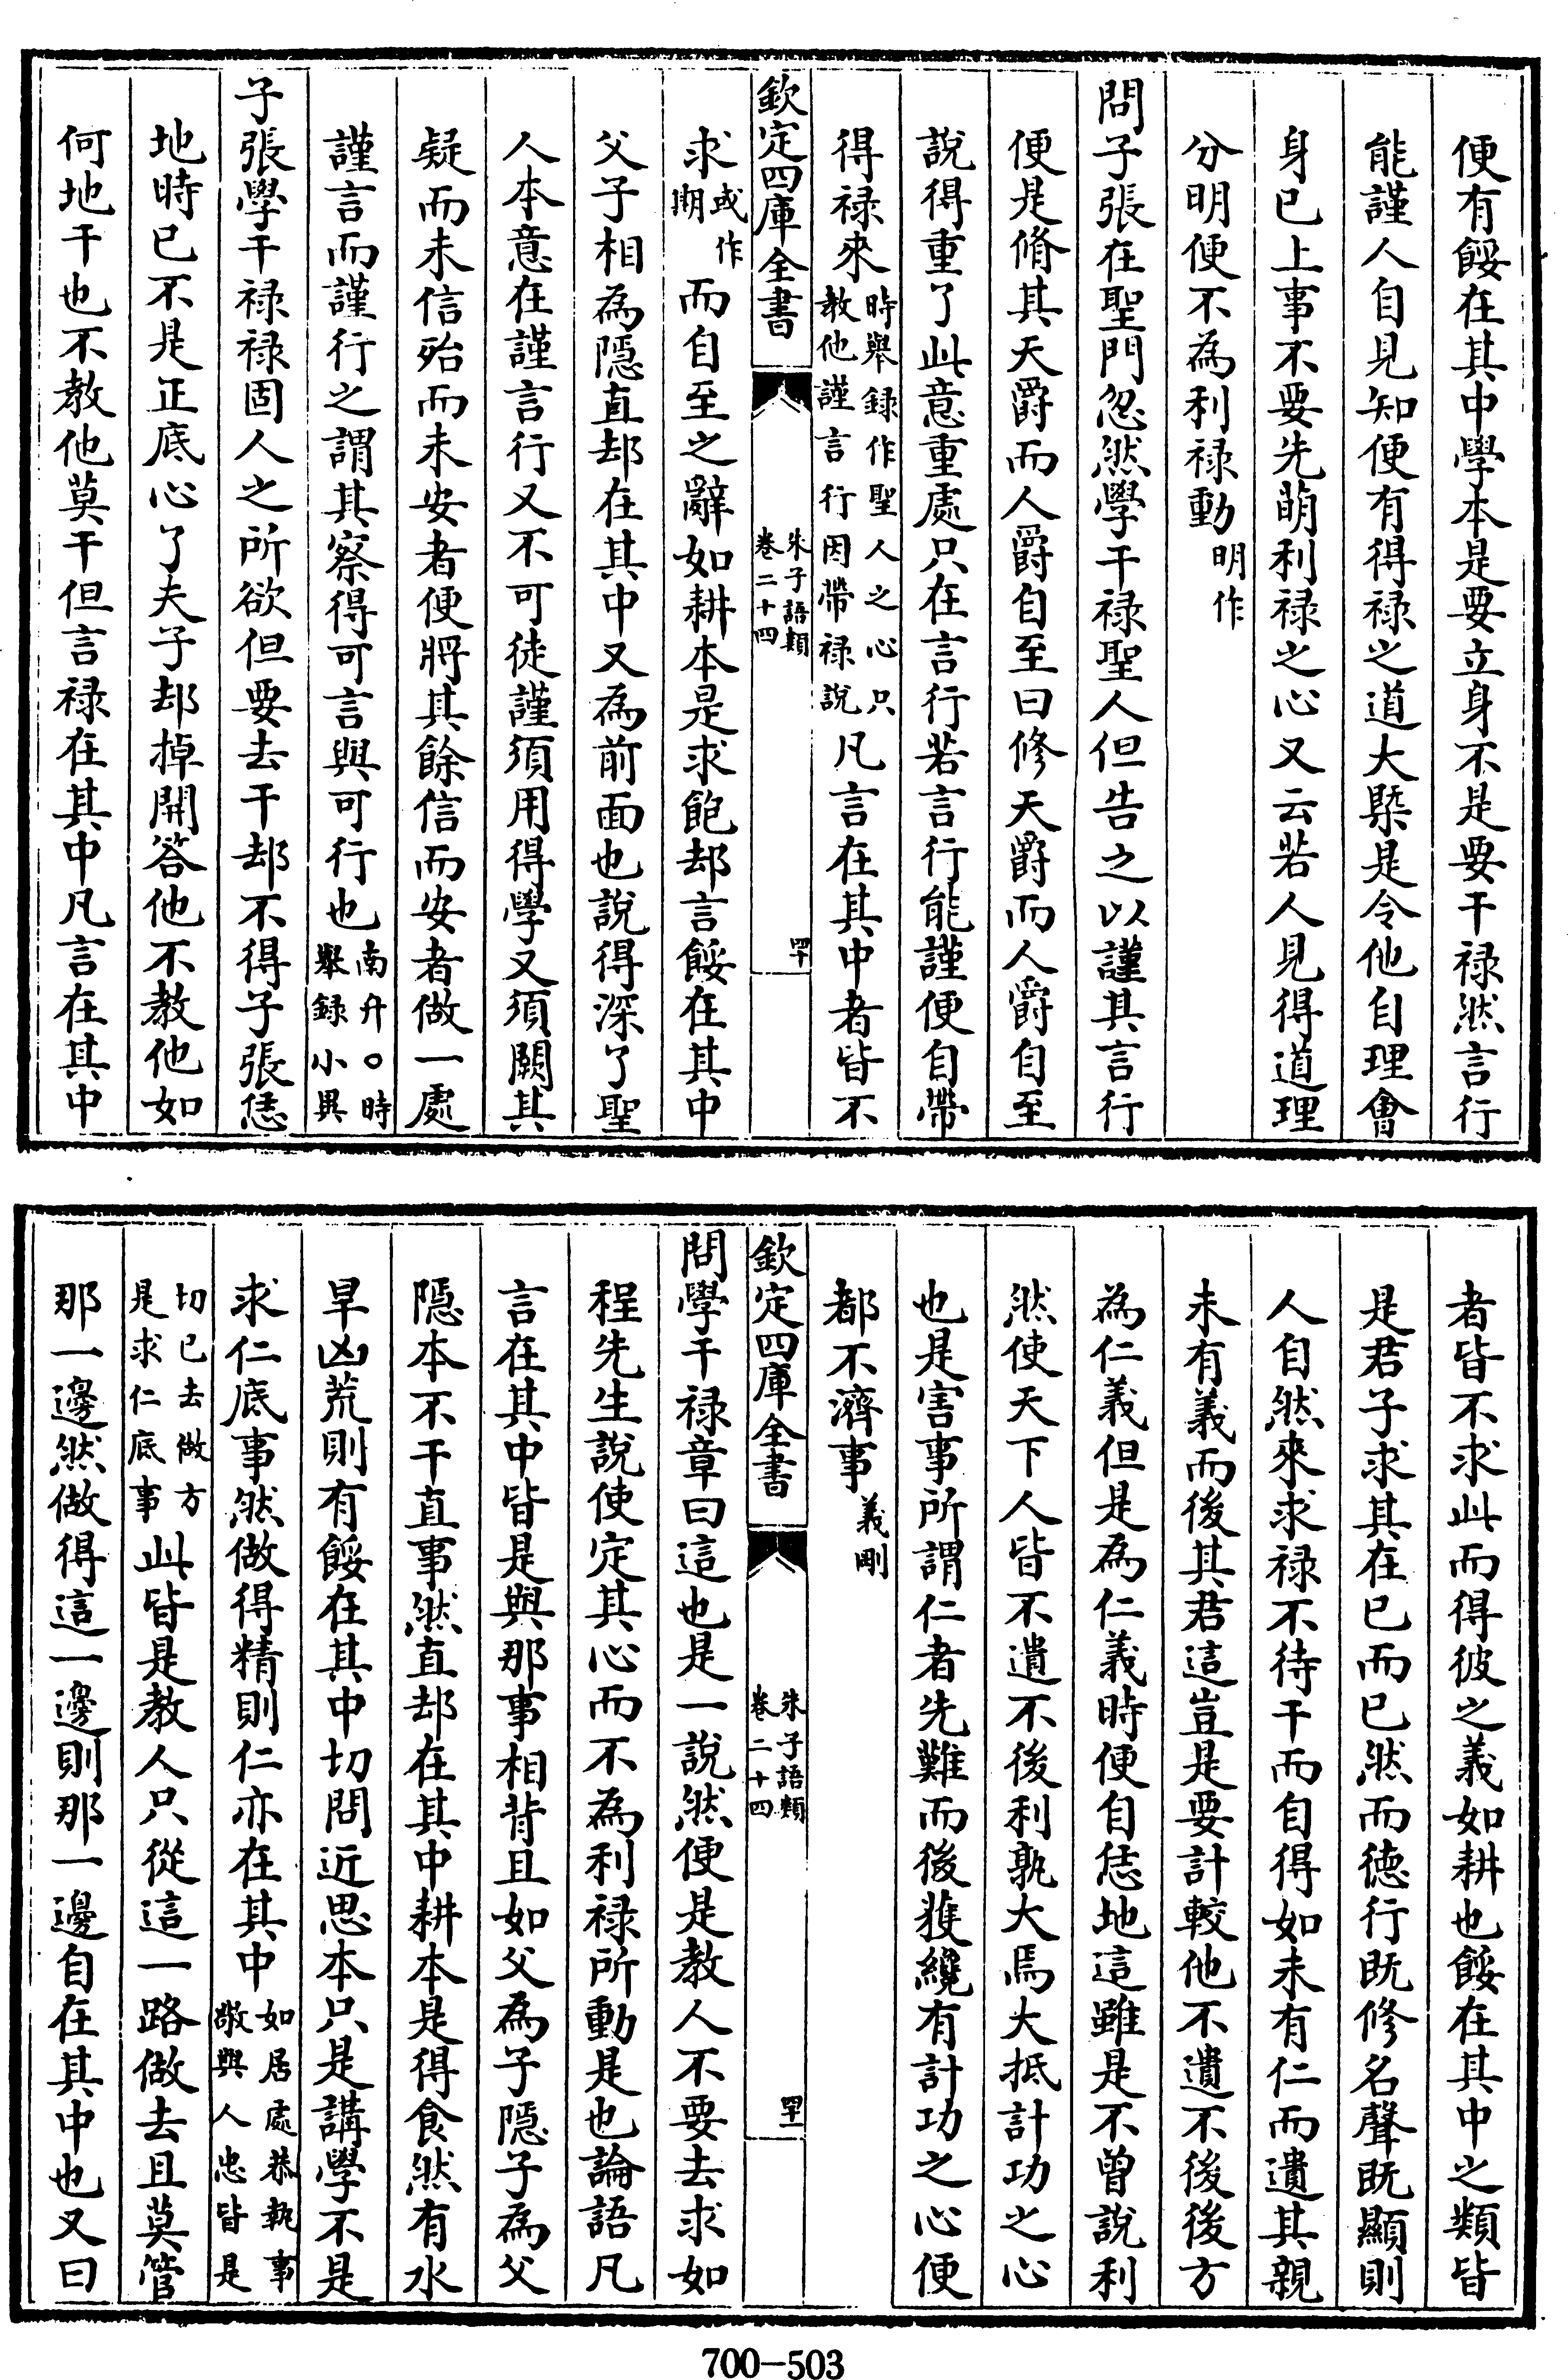 便有餒在其中學本是要立身不是要干禄然言行
能謹人自見知便有得禄之道大槩是令他自理會
身已上事不要先萌利禄之心又云若人見得道理
分明便不為利禄動明作
問子張在聖門忽然學干禄聖人但告之以謹其言行
便是脩其天爵而人爵自至曰修天爵而人爵自至
說得重了此意重處只在言行若言行能謹便自帶
得禄來時舉録作聖人之心只教他謹言行因帶禄說凡言在其中者皆不
欽定四庫全書
朱子語類
卷二十四
罕
求或作期而自至之辭如耕本是求飽却言餒在其中
父子相為隱直却在其中又為前面也說得深了聖
人本意在謹言行又不可徒謹須用得學又須闕其
疑而未信殆而未安者便將其餘信而安者做一處
謹言而謹行之謂其察得可言與可行也南升○時舉録小異
子張學干禄禄固人之所欲但要去干却不得子張恁
地時已不是正底心了夫子却掉開答他不教他如
何地干也不教他莫干但言禄在其中凡言在其中
者皆不求此而得彼之義如耕也餒在其中之類皆
是君子求其在已而已然而德行既修名聲既顯則
人自然來求禄不待干而自得如未有仁而遺其親
未有義而後其君這豈是要計較他不遺不後後方
為仁義但是為仁義時便自恁地這雖是不曾說利
然使天下人皆不遺不後利孰大焉大抵計功之心
也是害事所謂仁者先難而後獲纔有計功之心便
都不濟事義剛
欽定四庫全書
朱子語類
卷二十四
問學干禄章曰這也是一說然便是教人不要去求如
程先生說使定其心而不為利禄所動是也論語凡
言在其中皆是與那事相背且如父為子隱子為父
隱本不干直事然直却在其中耕本是得食然有水
旱凶荒則有餒在其中切問近思本只是講學不是
求仁底事然做得精則仁亦在其中如居處恭執事敬與人忠皆是
切已去做方是求仁底事此皆是教人只從這一路做去且莫管
那一邊然做得這一邊則那一邊自在其中也又曰
700-503